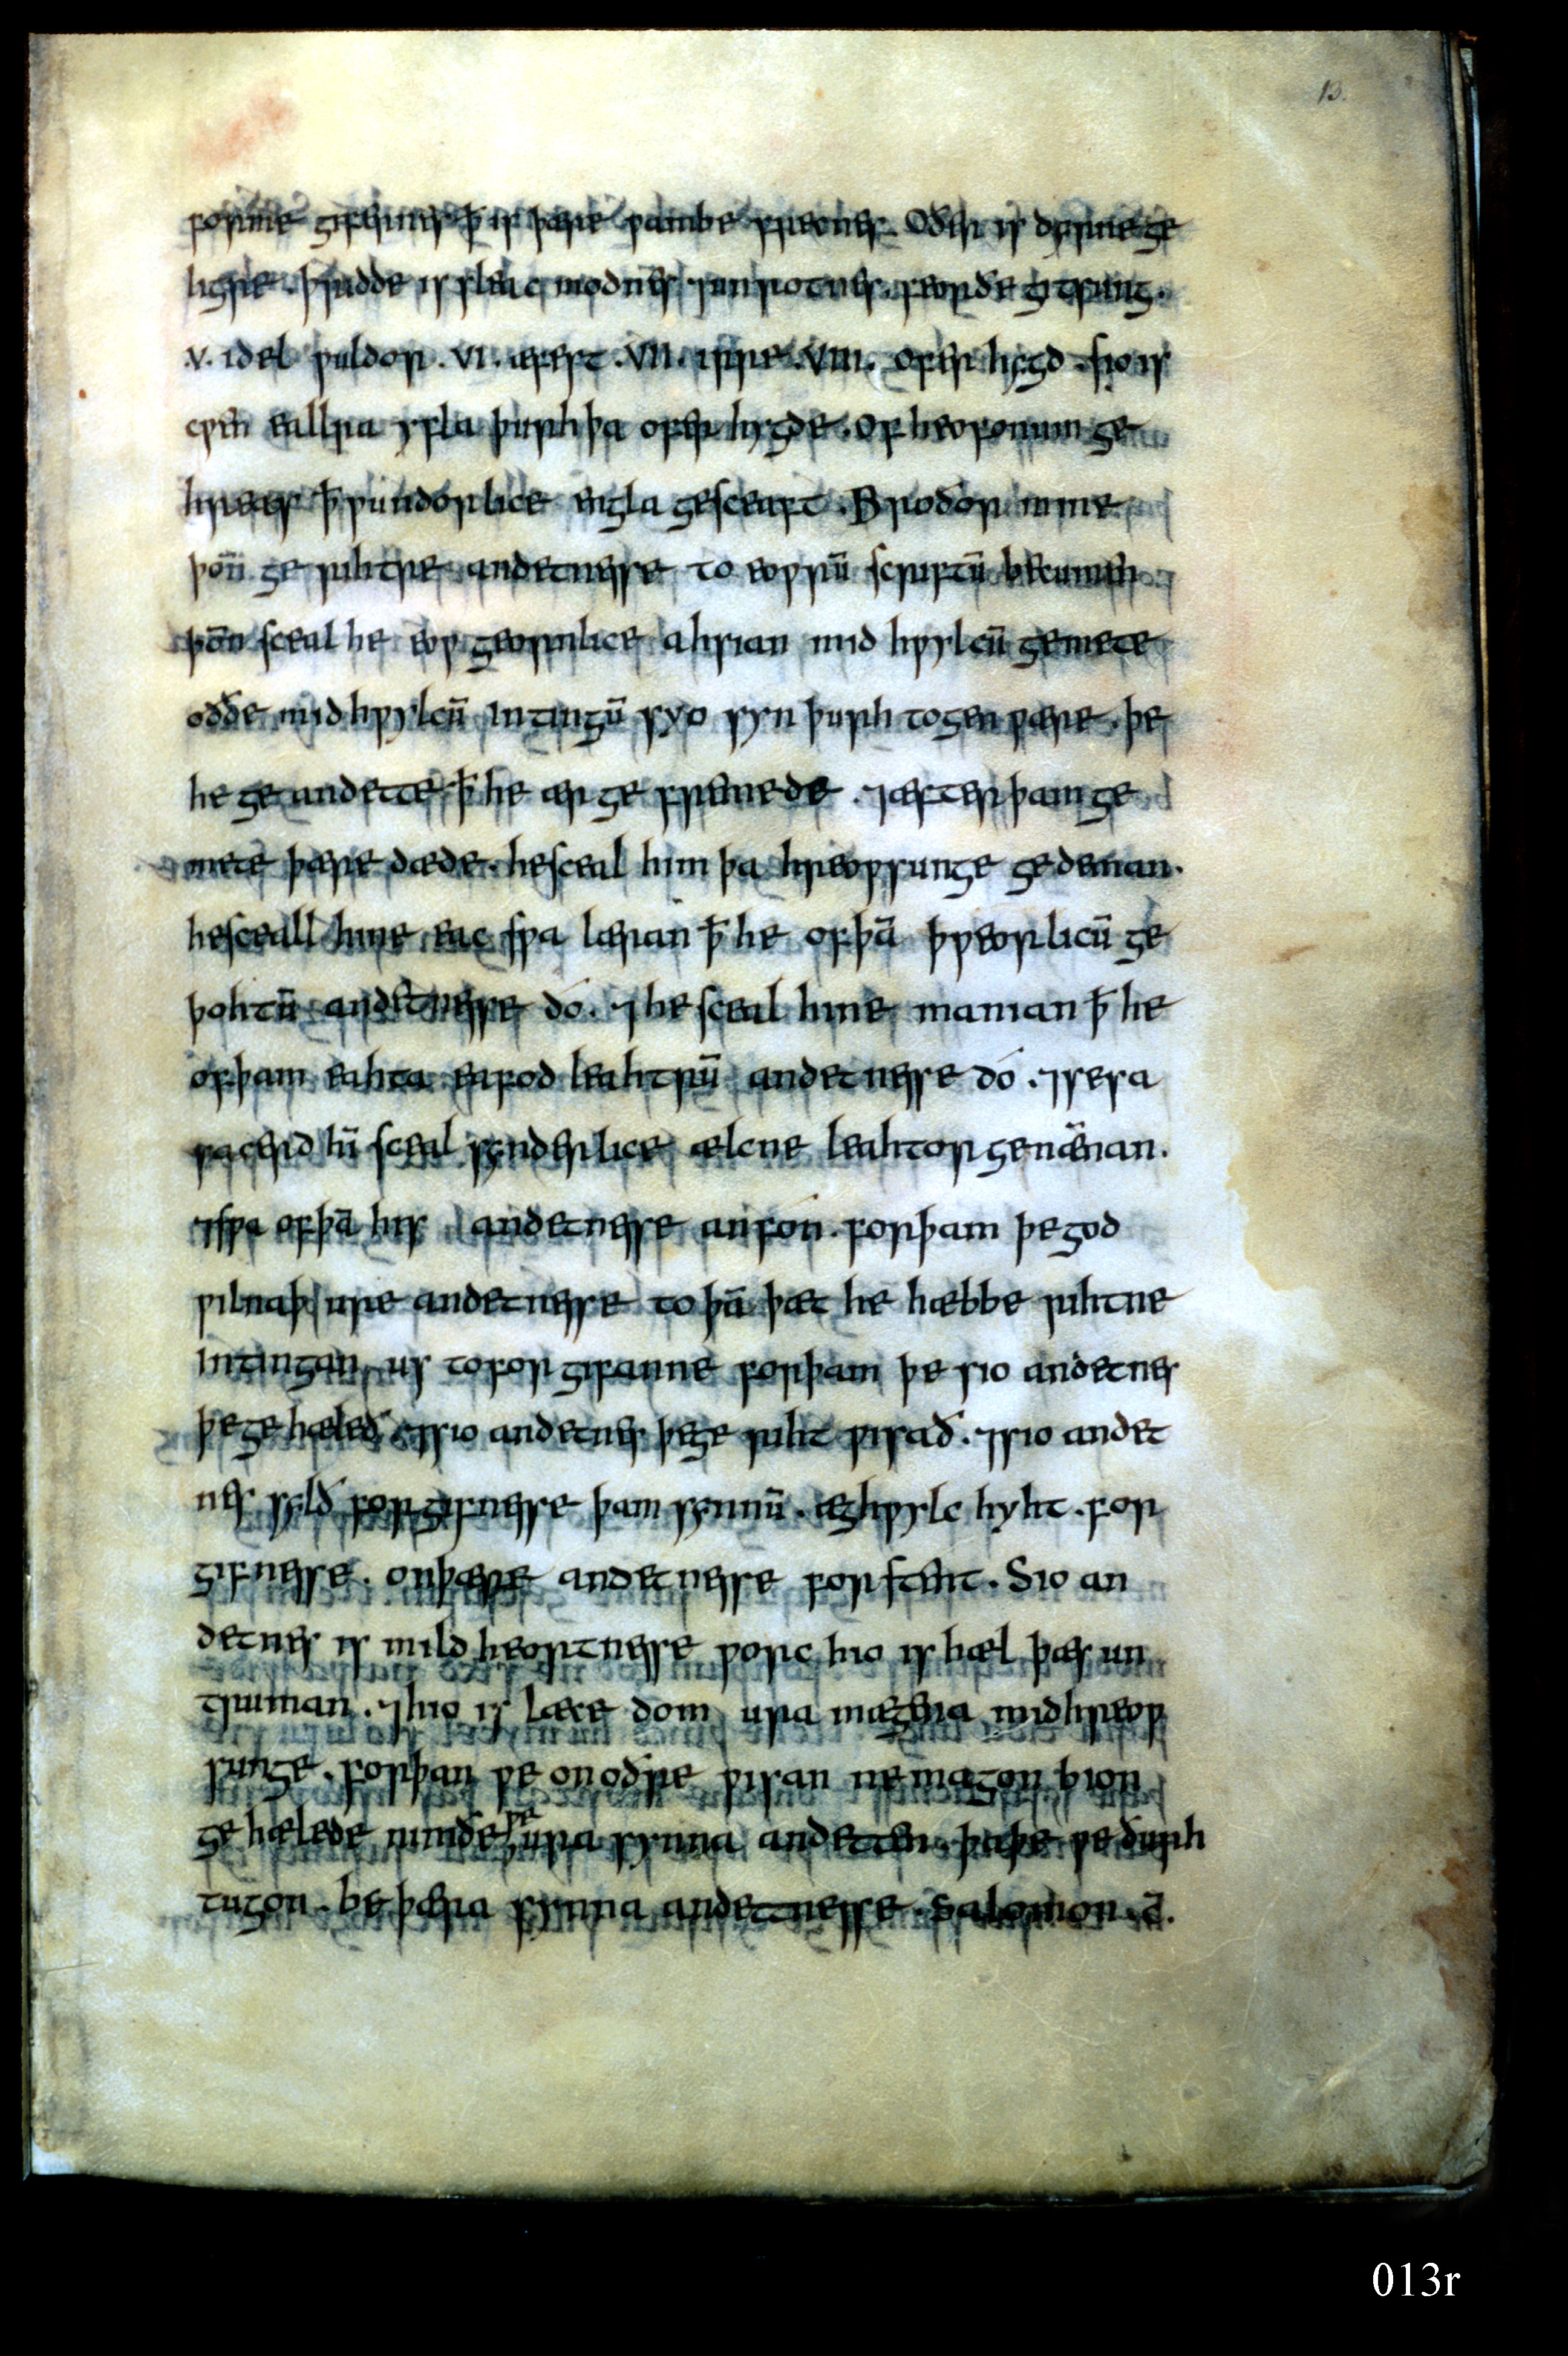 13.
forme gifernes ꝥ is þære wambe frecnes. Oðer is dyrne ge
ligre. þridde is sleac modnes ⁊ unrotnes. feorðe gitsung.
.V. idel wuldor. VI. æfest. VII. irre. VIII. ofer hygd. sio is
cwen eallra yfla þurh þa ofer hygde. of heofonum ge
hreas ꝥ wundorlice engla gesceaft. Broðor mine
þon̄ ge rihtre andetnesse to eowrū scriftū becumen.
þon̄ sceal he eow geornlice ahsian mid hwylcū gemete
oððe mid hwylcū intingū syo syn þurh togen wære. þe
he ge andette ꝥ he ær ge fremede. ⁊ æfter þam ge
mete þære dæde. he sceal him þa hreowsunge ge deman.
he sceall hine eac swa læran ꝥ he of þā þweorlicū ge
þohtū andetnesse dó. ⁊ he sceal hine manian ꝥ he
of þam eahta eafod leahtrū andetnesse dó. ⁊ se sa
sacerd hī sceal synderlice ælcne leahtor genæ̂nan.
⁊ swa of þā his andetnesse anfón. forþam þe god
wilnaþ ure andetnesse to þā þæt he hæbbe rihtne
intingan us to forgifanne forþam þe sio andetnes
þe ge hæleð. ⁊ sio andetnes þe ge riht wisað. ⁊ sio andet
nes sylð forgifnesse þam synnū. æghwylc hyht. for
gifnesse. on þære andetnesse forstent. Sio an
detnes is mild heortnesse worc hio is hæl þæs un
truman. ⁊ hio is læce dom ura mægena mid hreow
sunge. forþan we on oðre wisan ne magon bion
ge hælede nimðe we ura synna andetten. þa þe we ðurh
tugon. be þæra synna andettnesse. salomon. c̄.
013r